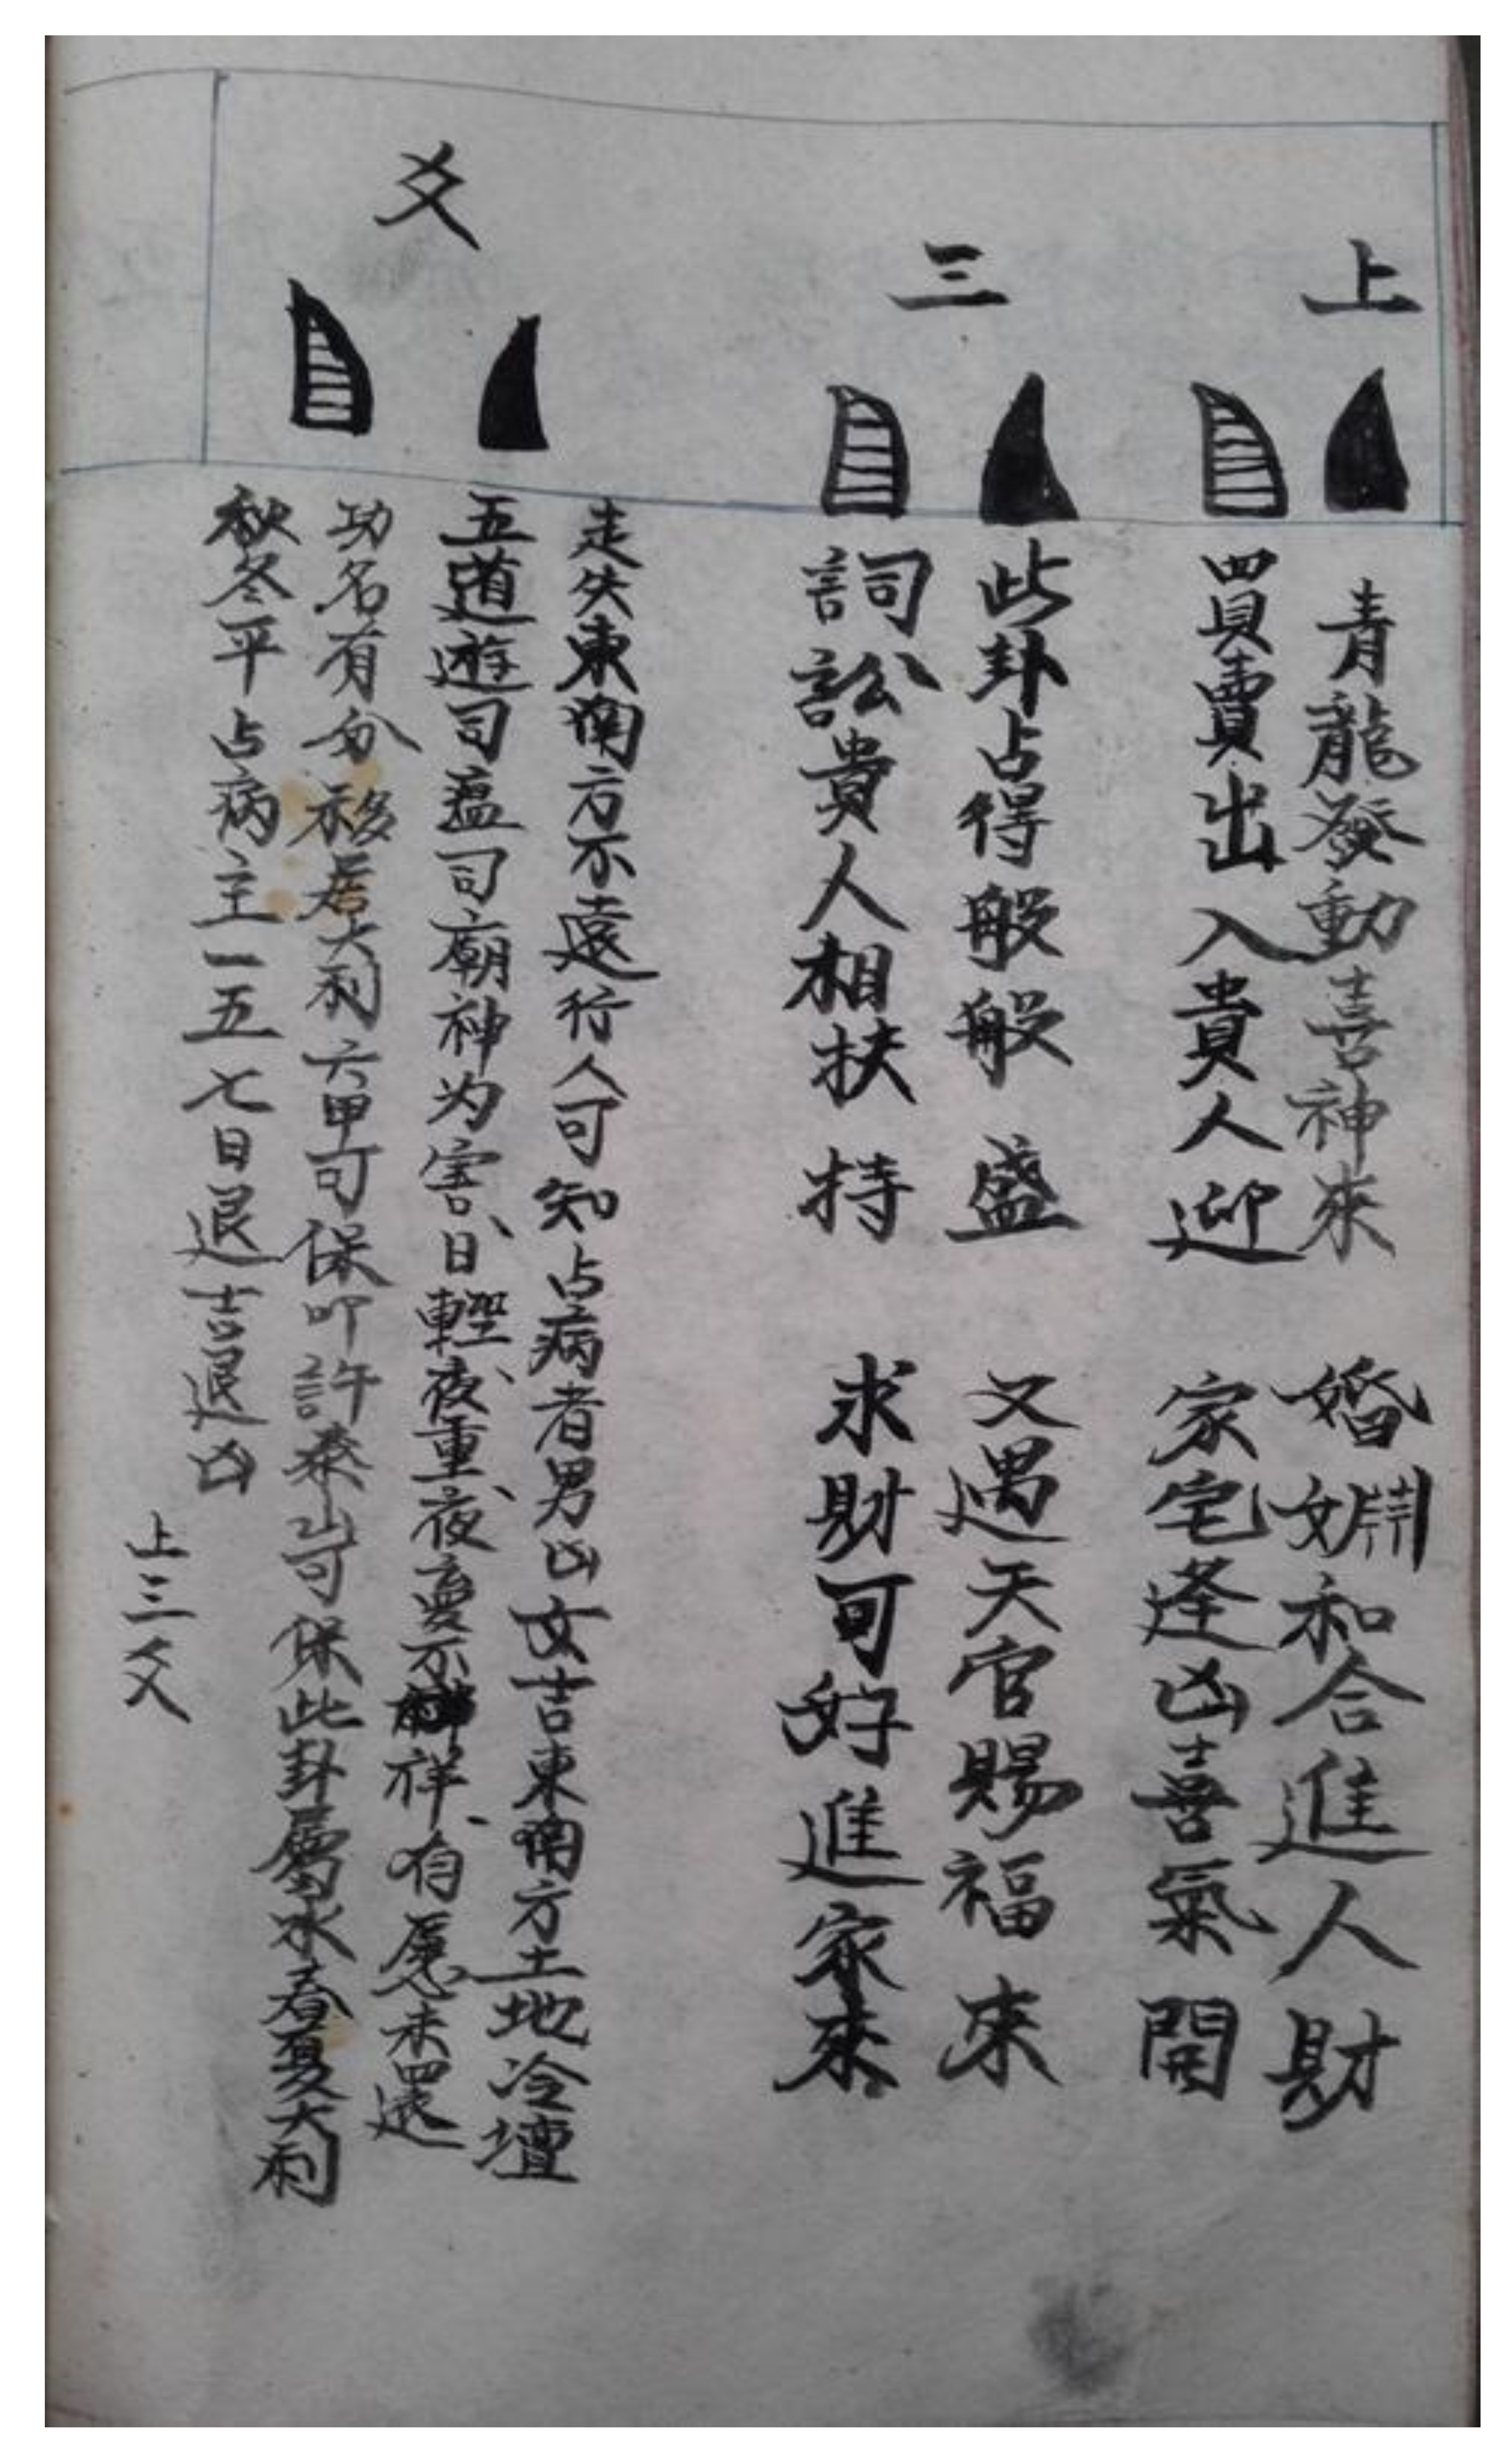 上三爻
青龍發動喜神來 婚姻和合進人財
買賣出入貴人迎 家宅逢凶喜氣開
此卦占得般般盛 又遇天官賜福來
詞訟貴人相扶持 求財可好進家來
走失東南方不遠行人可知占病者男凶女吉東南方土地冷壇
五道遊司瘟司廟神为害、日輕、夜重、夜夢不祥、有愿未還
功名有分移居大利六甲可保叩許泰山可保此卦屬水春夏大利
秋冬平占病主一五七日退吉退凶
上三爻